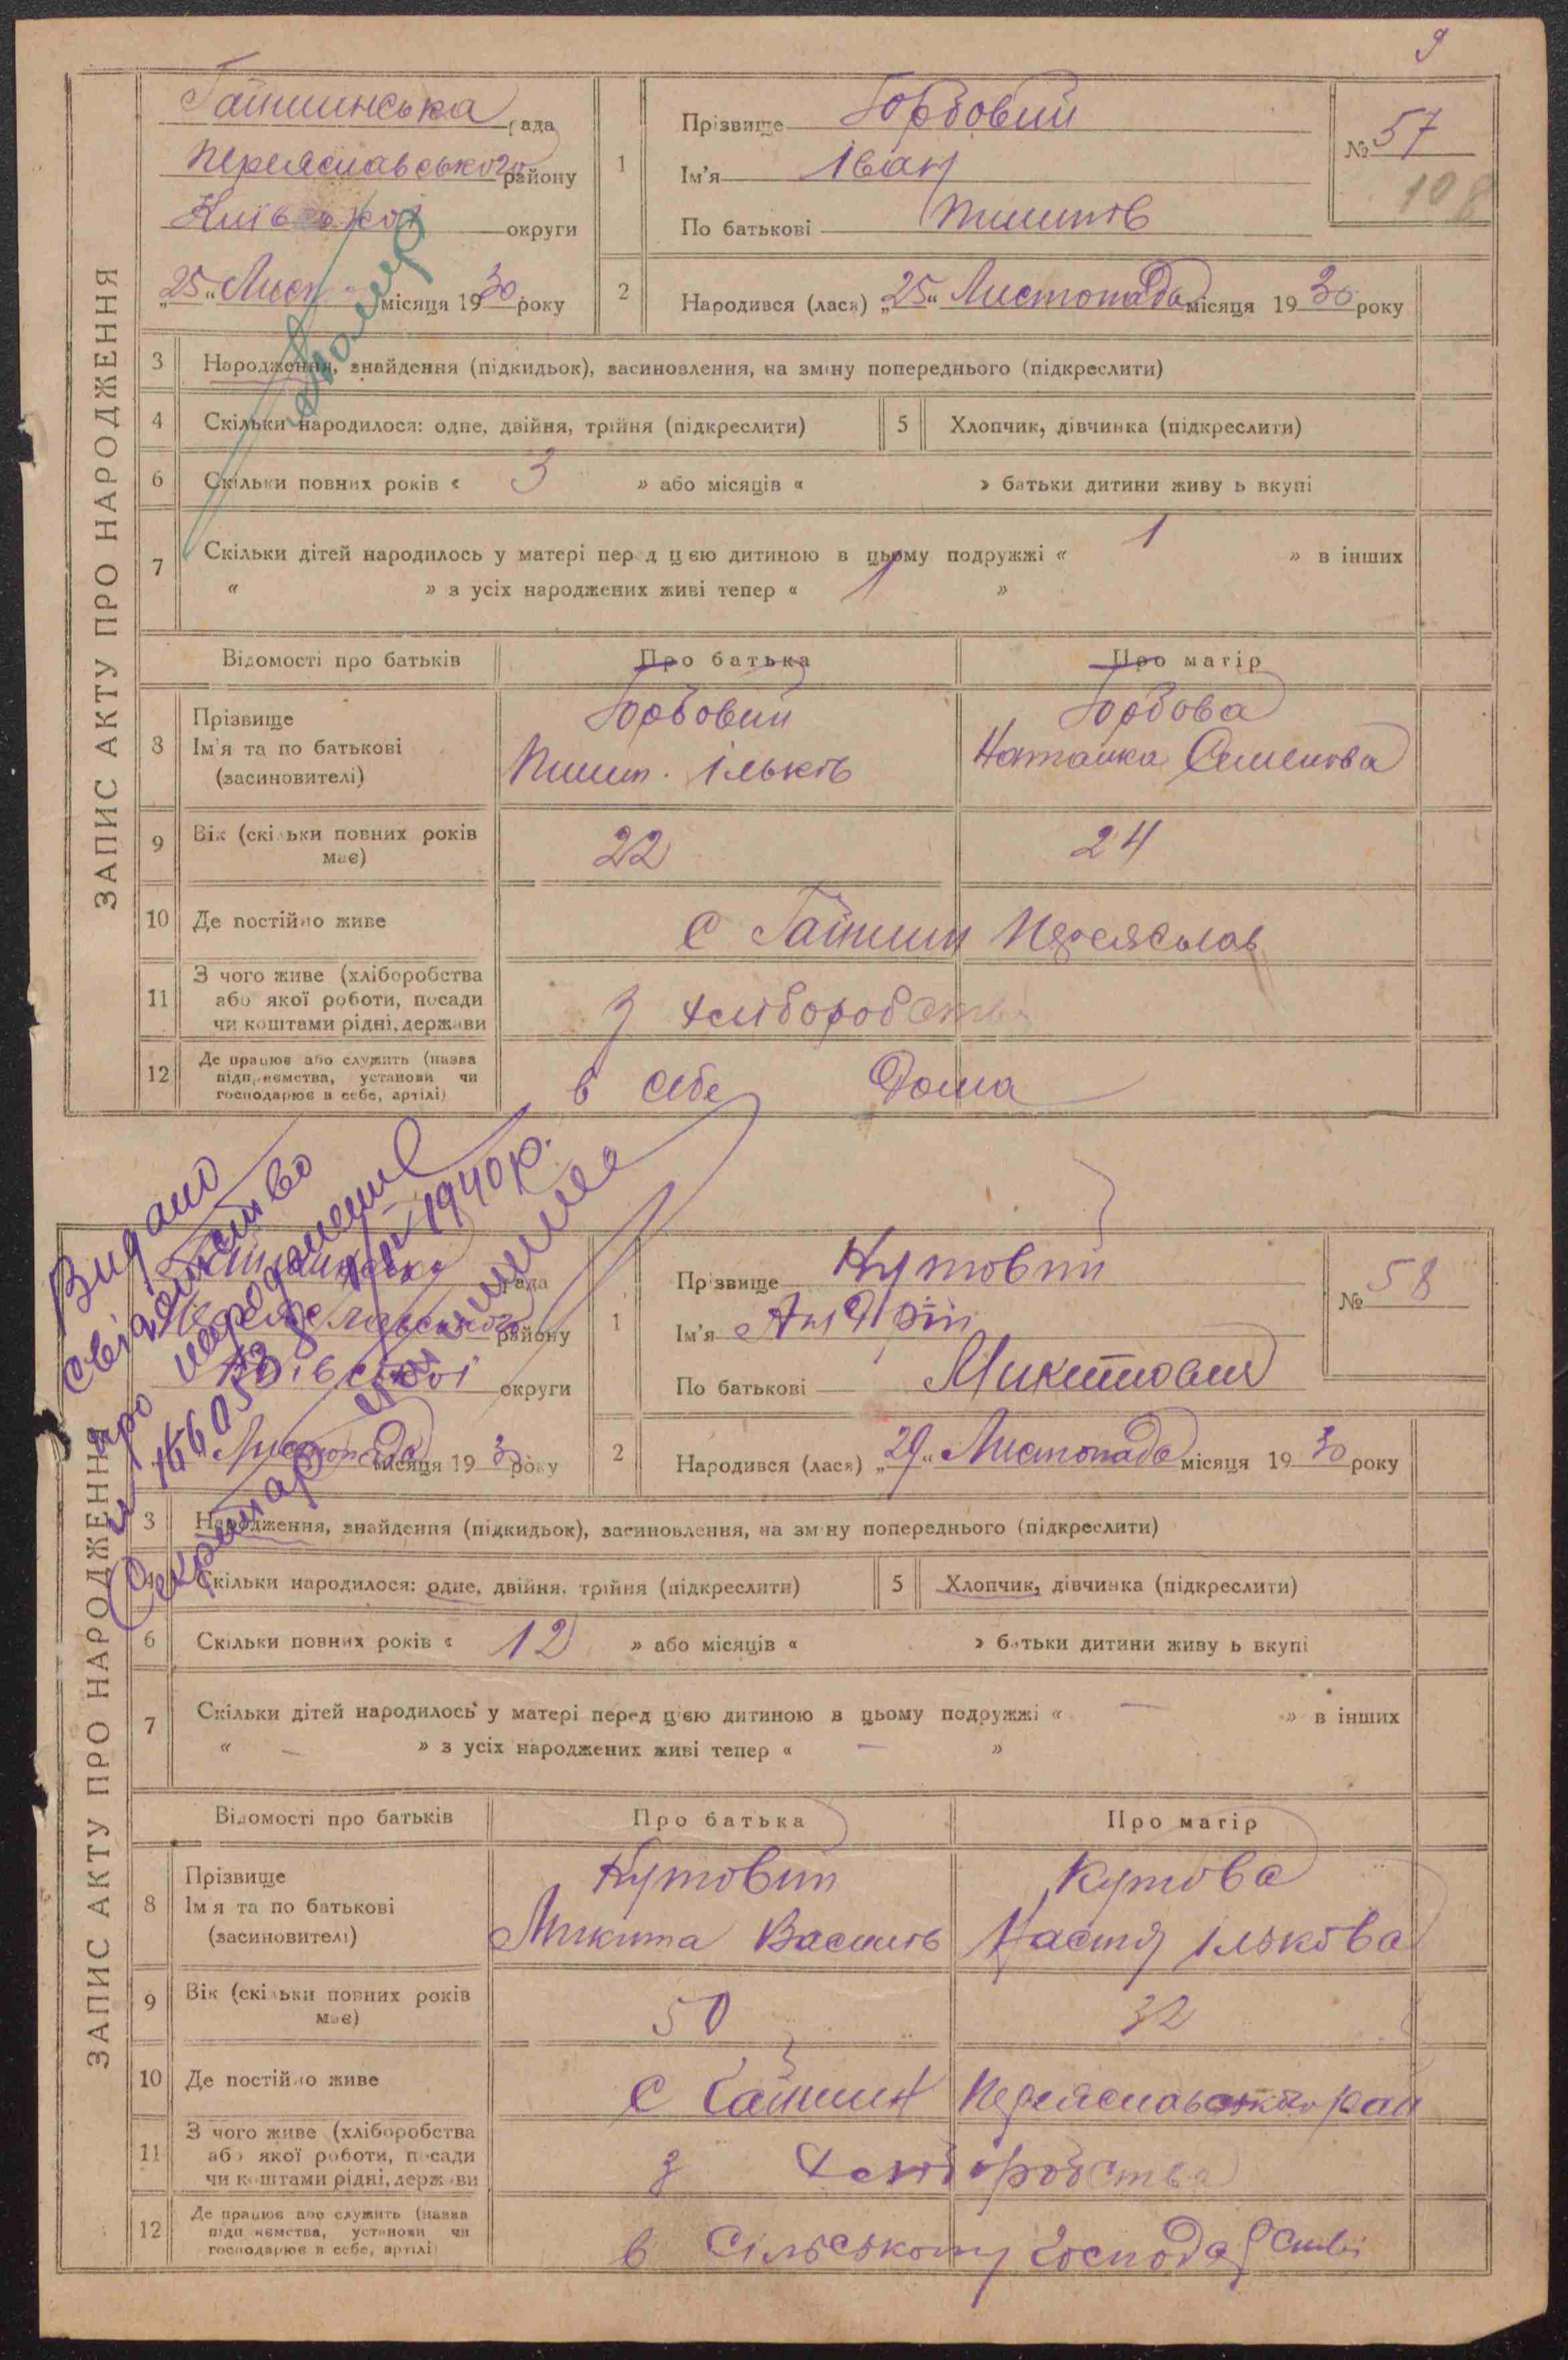 9
ЗАПИС АКТУ ПРО НАРОДЖЕННЯ
Гайшинська рада
Переяславського району
Київської округи
„25“ Лист місяця 1930 року
1
Прізвище Горбовий
Ім'я Іван
По батькові Пилипів
№ 57
108
2
Народився (лася) „25“ Листопада місяця 1930 року
помер
3 Народження, знайдення (підкидьок), засиновлення, на зміну попереднього (підкреслити)
4 Скільки народилося: одне, двійня, трійня (підкреслити) 5 Хлопчик, дівчинка (підкреслити)
6 Скільки повних років « 3 » або місяців « » батьки дитини живу ь вкупі
7 Скільки дітей народилось у матері пер д ц єю дитиною в цьому подружжі « 1 » в інших
« » з усіх народжених живі тепер « 1 »
Відомості про батьків Про батька Про матір
8 Прізвище
Ім'я та по батькові
(засиновителі)
Горбовий
Пилип. Ільків
Горбова
Наталка Семенова
9 Вік (скільки повних років має) 22 24
10 Де постійно живе с Гайшин Переяслав
11 З чого живе (хліборобства
або якої роботи, посади
чи коштами рідні, держави
З хліборобства
12 Де працює або служить (назва
підприємства, установи чи
господарює в себе, артілі)
в себе Дома
Видано
свідоцтво
про народження
1940 р.
Секретар
ЗАПИС АКТУ ПРО НАРОДЖЕННЯ
Гайшинська рада
Переяславського району
Київської округи
Листопада місяця 1930 року
1
Прізвище Кутовий
Ім'я Андрій
По батькові Микитович
№ 58
2
Народився (лася) „29“ Листопада місяця 1930 року
3 Народження, знайдення (підкидьок), засиновлення, на зміну попереднього (підкреслити)
4 Скільки народилося: одне, двійня, трійня (підкреслити) 5 Хлопчик, дівчинка (підкреслити)
6 Скільки повних років « 12 » або місяців « » батьки дитини живу ь вкупі
7 Скільки дітей народилось у матері перед цією дитиною в цьому подружжі « — » в інших
« — » з усіх народжених живі тепер « — »
Відомості про батьків Про батька Про матір
8 Прізвище
Ім'я та по батькові
(засиновителі)
Кутовий
Микита Василів
Кутова
Настя Ількова
9 Вік (скільки повних років має) 50 32
10 Де постійно живе с Гайшин Переяславського рай
11 З чого живе (хліборобства
або якої роботи, посади
чи коштами рідні, держави
З хліборобства
12 Де працює або служить (назва
підприємства, установи чи
господарює в себе, артілі)
в сільському господарстві